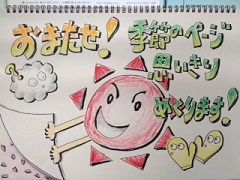 おまたせ!
季節のページ
思いきり
めくります!
?